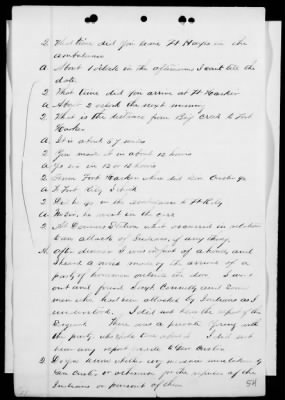 Q What time did you leave Ft Hays in the
ambulance
A About 1 o'clock in the afternoon I cant tell the
date.
Q What time did you arrive at Ft Harker
A About 2 o'clock the next morning
Q What is the distance from Big Creek to Fort
Harker
A It is about 57 miles
Q You made it in about 12 hours
A Yes sir in 12 or 13 hours
Q From Fort Harker where did Gen Custer go
A To Fort Riley I think
Q Did he go in the ambulance to Ft Riley
A No Sir, he went in the cars
Q At Downers Station what occurred in relation
to an attack of Indians, if any thing,
A After dinner I was in front of a
I heard a noise made by the arrival of a
party of horsemen outside the door. I went
out and found Sergt Connelly and
men who had been attacked by Indians as I
understood. I did not hear the report of the
Sergeant. There was a private Young with
the party, who told me about it. I did not
hear any report made to Gen Custer
Q Do you know whether any measures were taken by
Gen Custer or otherwise for the repulse of the
Indians or pursuit of them
54